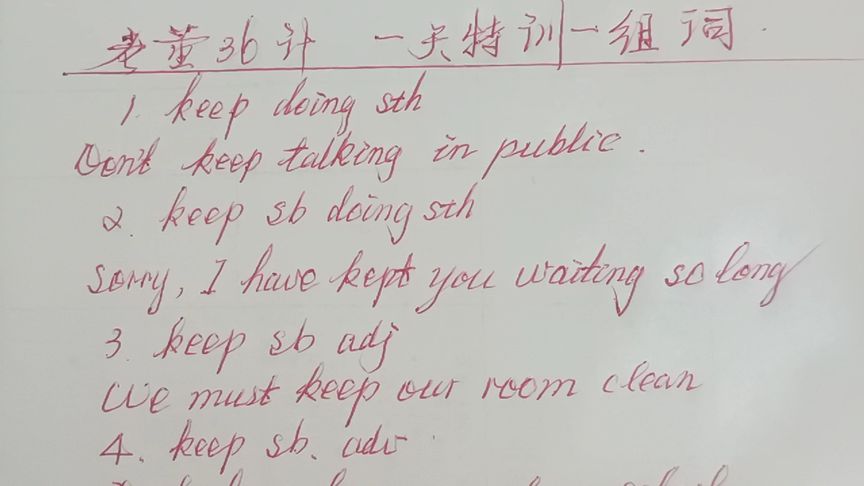 老董36计 一天特训一组词
1. keep doing sth
Don't keep talking in public.
2. keep sb doing sth
Sorry, I have kept you waiting so long
3. keep sb adj
We must keep our room clean
4. keep sb. adv